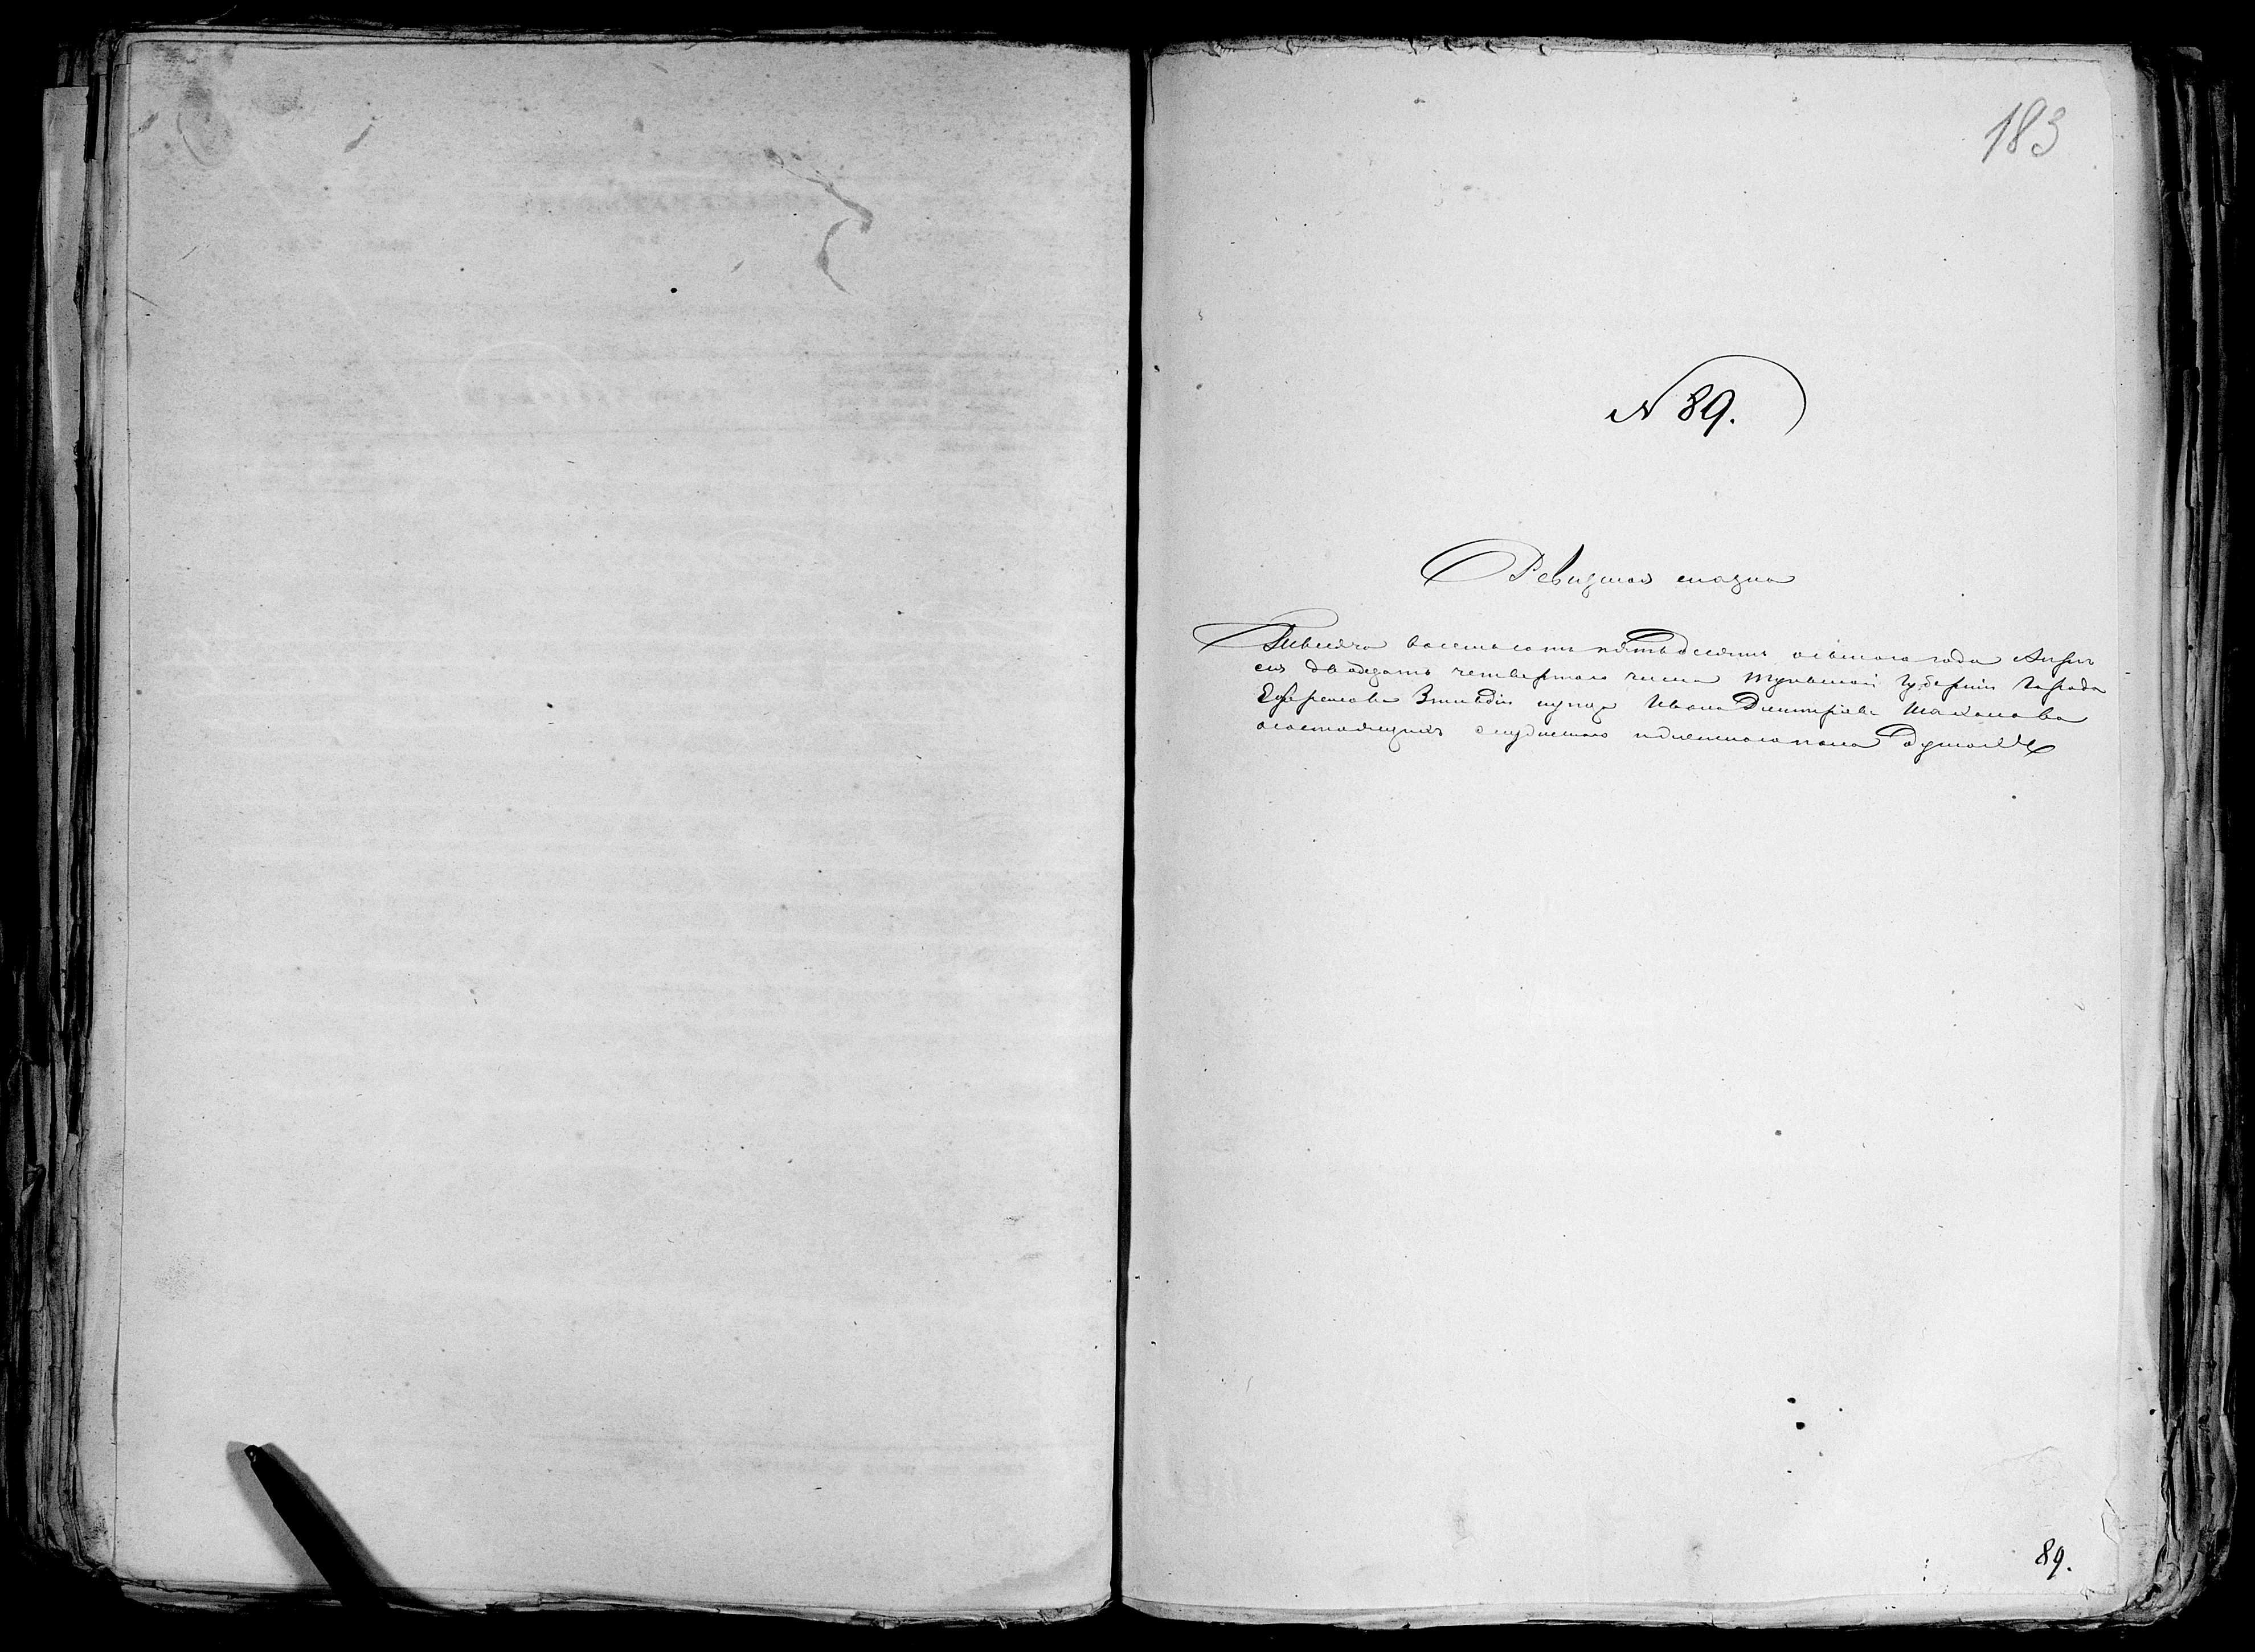 183
N 89.
Ревизская сказка
Тысяча восемьсотъ пятьдесятъ осьмого года Апрѣ
ля двадцать четвертого числа Тульской Губерніи Города
Ефремова 3й гильдіи купца Ивана Дмитріева
о состоящихъ мужеского и женского пола душахъ
89.